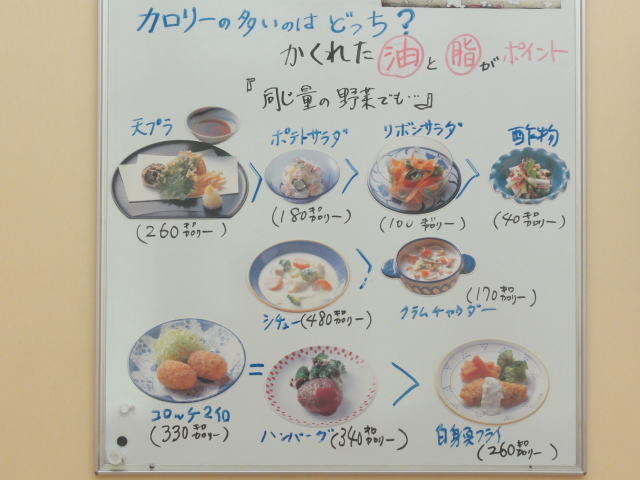 カロリーの多いのは どっち?
かくれた 油 と 脂 が ポイント
『同じ量の野菜でも…』
天プラ ポテトサラダ リボンサラダ 酢の物
> > >
(260キロカロリー) (180キロカロリー) (100キロカロリー) (40キロカロリー)
>
シチュー(480キロカロリー) クラムチャウダー (170キロカロリー)
= >
コロッケ2個 ハンバーグ(340キロカロリー) 白身魚フライ
(330キロカロリー) (260キロカロリー)